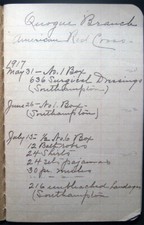 Quogue Branch
American Red Cross
1917
May 31 - No. 1 Box
636 Surgical Dressings
(Southampton)
June 26 - No. 1 Box -
(Southampton)
July 15 - No 6 Box
12 Bed
24 Shirts
24 suits pajamas
30 pr
216 unbleached bandages
(Southampton